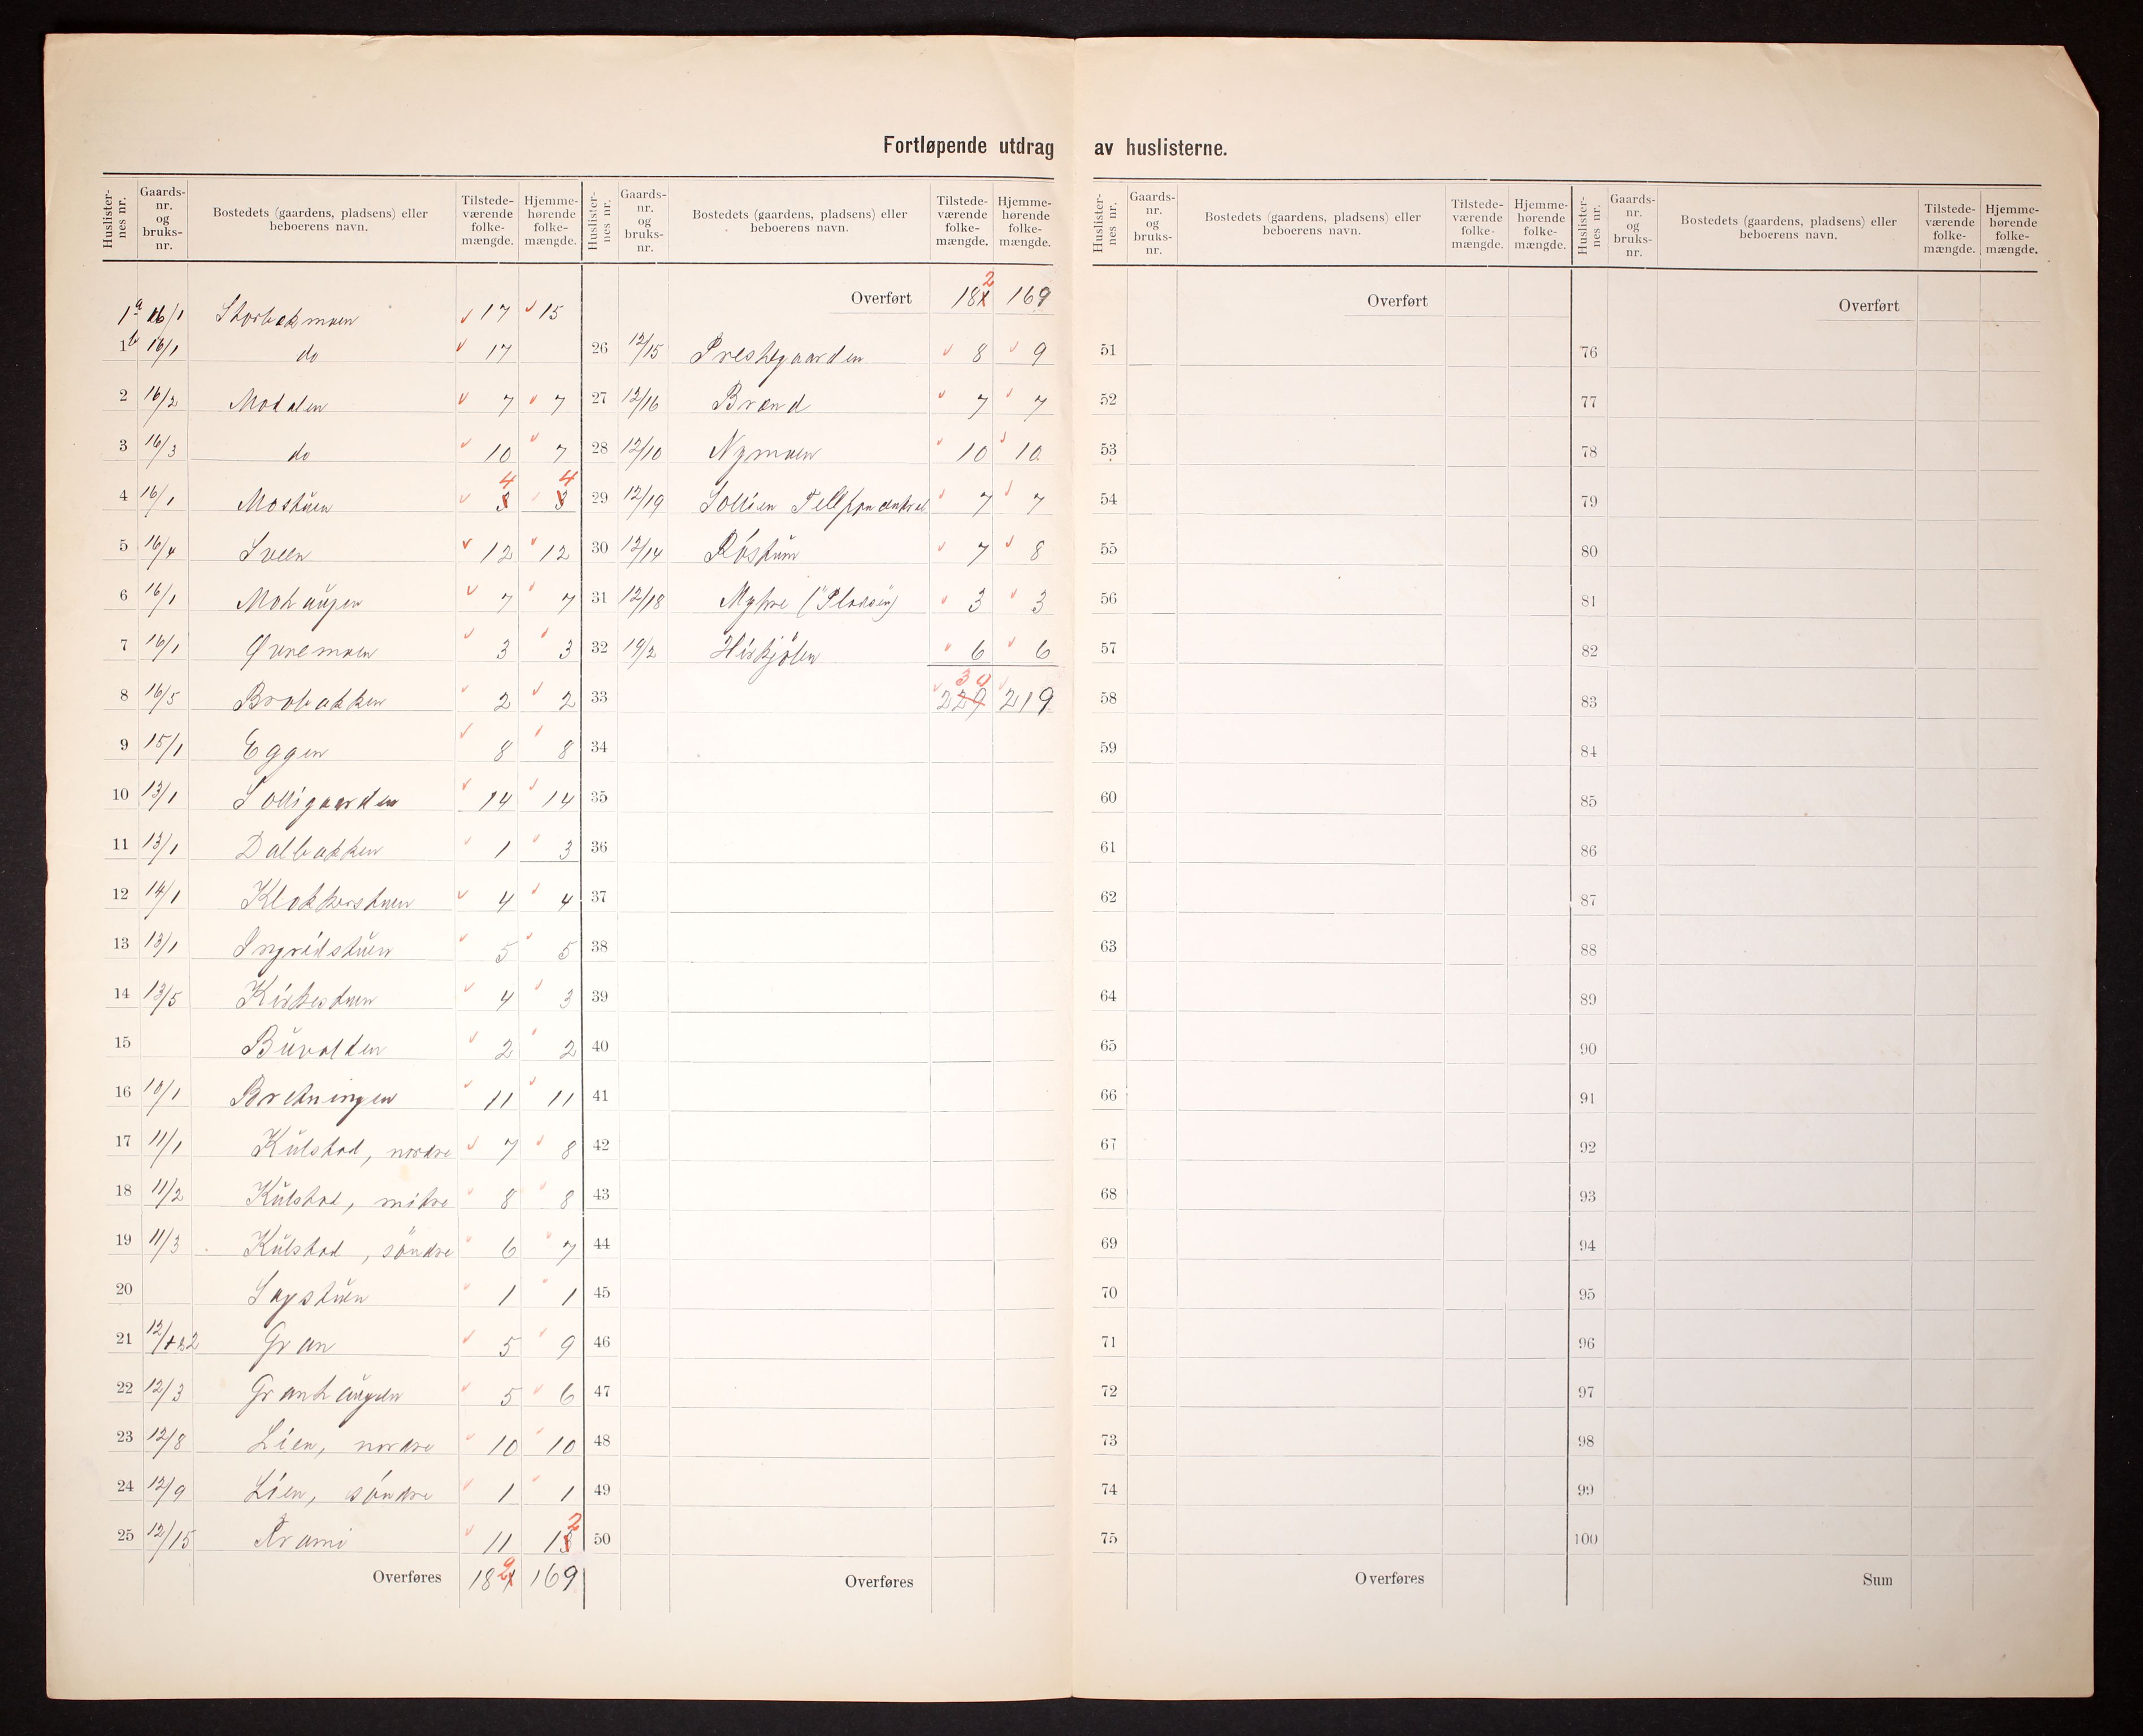 Fortløpende utdrag av huslisterne.
Huslisternes nr. Gaardsnr. og bruksnr. Bostedets (gaardens, pladsens) eller beboerens navn. Tilstedeværende folkemængde. Hjemmehørende folkemængde.
1a 16/1 Storbækmoen 17 15
1b 16/1 do 17
2 16/2 Modalen 7 7
3 16/3 do 10 7
4 16/1 Mostuen 3 4 3 4
5 16/4 Sveen 12 12
6 16/1 Mohaugen 7 7
7 16/1 Øvremoen 3 3
8 16/5 Brobakken 2 2
9 15/1 Eggen 8 8
10 13/1 Solligaarden 14 14
11 13/1 Dalbakken 1 3
12 14/1 Klokkerstuen 4 4
13 13/1 Ingridstuen 5 5
14 13/5 Kirkestuen 4 3
15 Buvolden 2 2
16 10/1 Bretningen 11 11
17 11/1 Kulstad, nordre 7 8
18 11/2 Kulstad, mitre 8 8
19 11/3 Kulstad, söndre 6 7
20 Sagstuen 1 1
21 12/1+2 Gran 5 9
22 12/3 Granhaugen 5 6
23 12/8 Lien, nordre 10 10
24 12/9 Lien, søndre 1 1
25 12/15 11 13 2
Overføres 181 2 169
Huslisternes nr. Gaardsnr. og bruksnr. Bostedets (gaardens, pladsens) eller beboerens navn. Tilstedeværende folkemængde. Hjemmehørende folkemængde.
Overført 181 2 169
26 12/15 Prestegaarden 8 9
27 12/16 Brænd 7 7
28 12/10 Nymoen 10 10
29 12/19 Sollien Tellefoncentral 7 7
30 12/14 Röstum 7 8
31 12/18 Myhre (Pladsen) 3 3
32 19/2 Hirkjölen 6 6
33 229 30 219
34
35
36
37
38
39
40
41
42
43
44
45
46
47
48
49
50
Overføres
Huslisternes nr. Gaardsnr. og bruksnr. Bostedets (gaardens, pladsens) eller beboerens navn. Tilstedeværende folkemængde. Hjemmehørende folkemængde.
Overført
51
52
53
54
55
56
57
58
59
60
61
62
63
64
65
66
67
68
69
70
71
72
73
74
75
Overføres
Huslisternes nr. Gaardsnr. og bruksnr. Bostedets (gaardens, pladsens) eller beboerens navn. Tilstedeværende folkemængde. Hjemmehørende folkemængde.
Overført
76
77
78
79
80
81
82
83
84
85
86
87
88
89
90
91
92
93
94
95
96
97
98
99
100
Sum